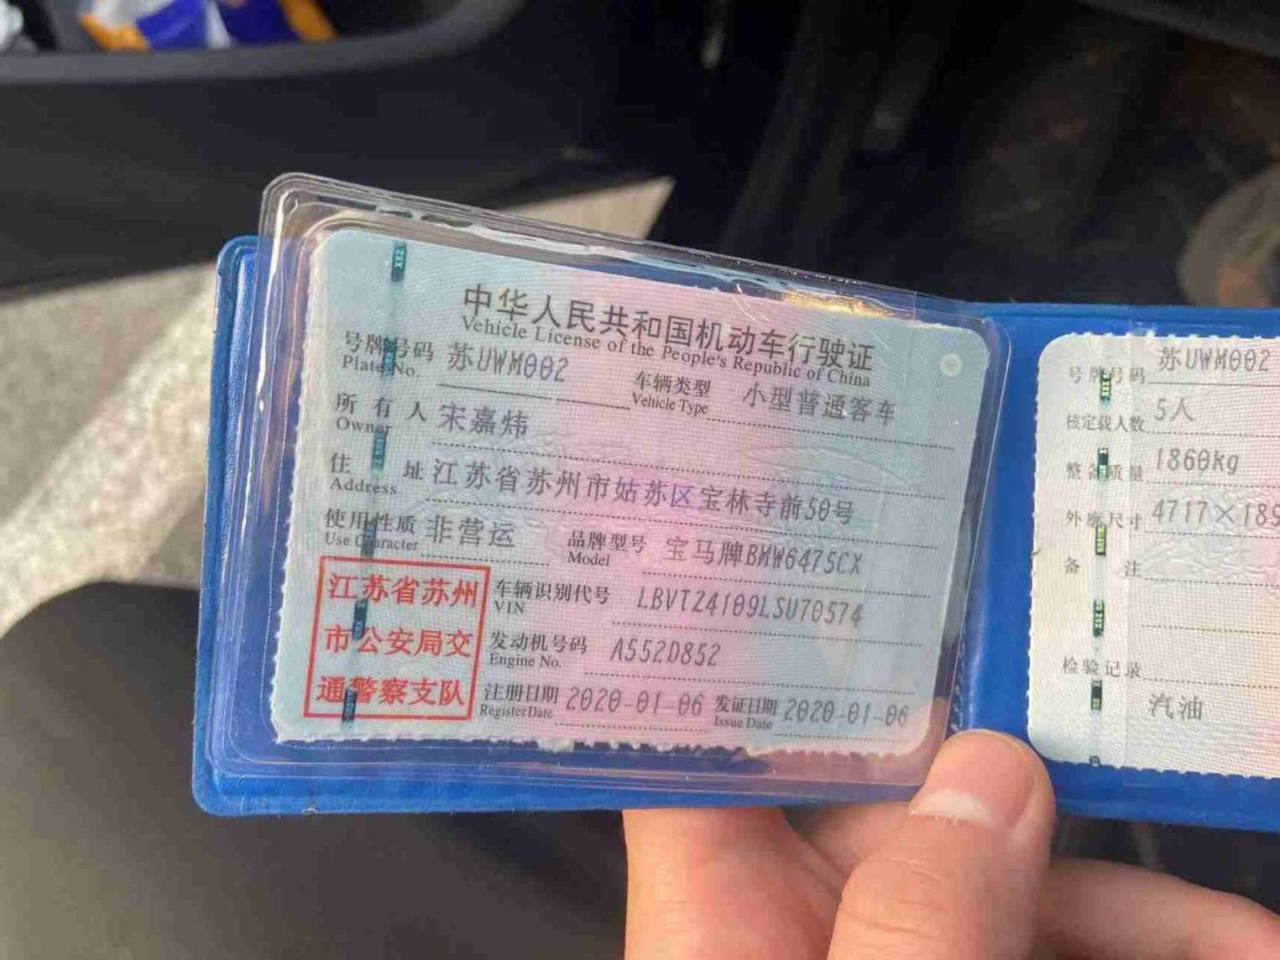 中华人民共和国机动车行驶证
Vehicle License of the People's Republic of China
号牌号码 苏UWM002 车辆类型 小型普通客车
Plate No. Vehicle Type
所有人 宋嘉炜
Owner
住址 江苏省苏州市姑苏区宝林寺前50号
Address
使用性质 非营运 品牌型号 宝马牌BMW6475CX
Use Character Model
江苏省苏州
市公安局交
通警察支队
车辆识别代号 LBVTZ4109LSU70574
VIN
发动机号码 A552D852
Engine No.
注册日期 2020-01-06 发证日期 2020-01-06
Register Date Issue Date
号牌号码 苏UWM002
核定载人数 5人
整备质量 1860kg
外廓尺寸 4717×189
备注
检验记录
汽油